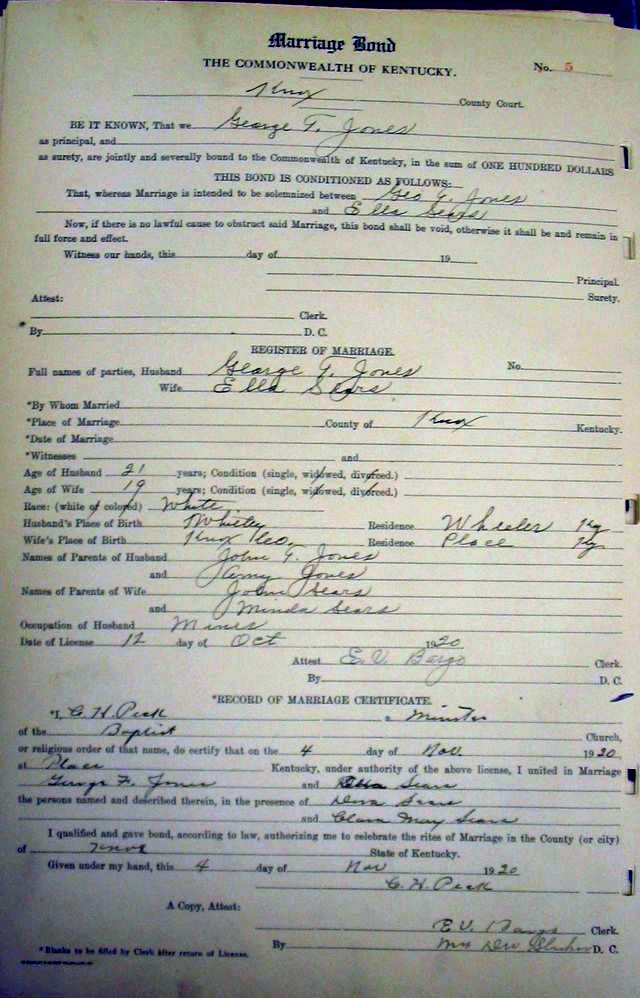 Marriage Bond
THE COMMONWEALTH OF KENTUCKY. No. 5
Knox County Court.
BE IT KNOWN, That we George T. Jones
as principal, and
as surety, are jointly and severally bound to the Commonwealth of Kentucky, in the sum of ONE HUNDRED DOLLARS
THIS BOND IS CONDITIONED AS FOLLOWS:
That, whereas Marriage is intended to be solemnized between Geo T. Jones
and Ella Sears
Now, if there is no lawful cause to obstruct said Marriage, this bond shall be void, otherwise it shall be and remain in
full force and effect.
Witness our hands, this day of 19
Principal.
Surety.
Attest:
Clerk.
*By D. C.
REGISTER OF MARRIAGE.
Full names of parties, Husband George T. Jones No.
Wife Ella Sears
*By Whom Married
*Place of Marriage County of Knox Kentucky.
*Date of Marriage
*Witnesses and
Age of Husband 21 years; Condition (single, widowed, divorced.)
Age of Wife 19 years; Condition (single, widowed, divorced.)
Race: (white or colored) White
Husband's Place of Birth Whitley Residence Wheeler Ky
Wife's Place of Birth Knox Co. Residence Place Ky
Names of Parents of Husband John T. Jones
and Amy Jones
Names of Parents of Wife John Sears
and Minda Sears
Occupation of Husband Miner
Date of License 12 day of Oct 1920
Attest E. V. Bargo Clerk.
By D. C.
*RECORD OF MARRIAGE CERTIFICATE.
*I, C. H. Peck a Minister
of the Baptist Church,
or religious order of that name, do certify that on the 4 day of Nov. 1920
at Place Kentucky, under authority of the above license, I united in Marriage
George F. Jones and Ella Sears
the persons named and described therein, in the presence of Sears
and Clara May Sears
I qualified and gave bond, according to law, authorizing me to celebrate the rites of Marriage in the County (or city)
of Knox State of Kentucky.
Given under my hand, this 4 day of Nov 1920
C. H. Peck
A Copy, Attest:
E. V. Bargo Clerk.
*Blanks to be filled by Clerk after return of License. By Mrs D. C.